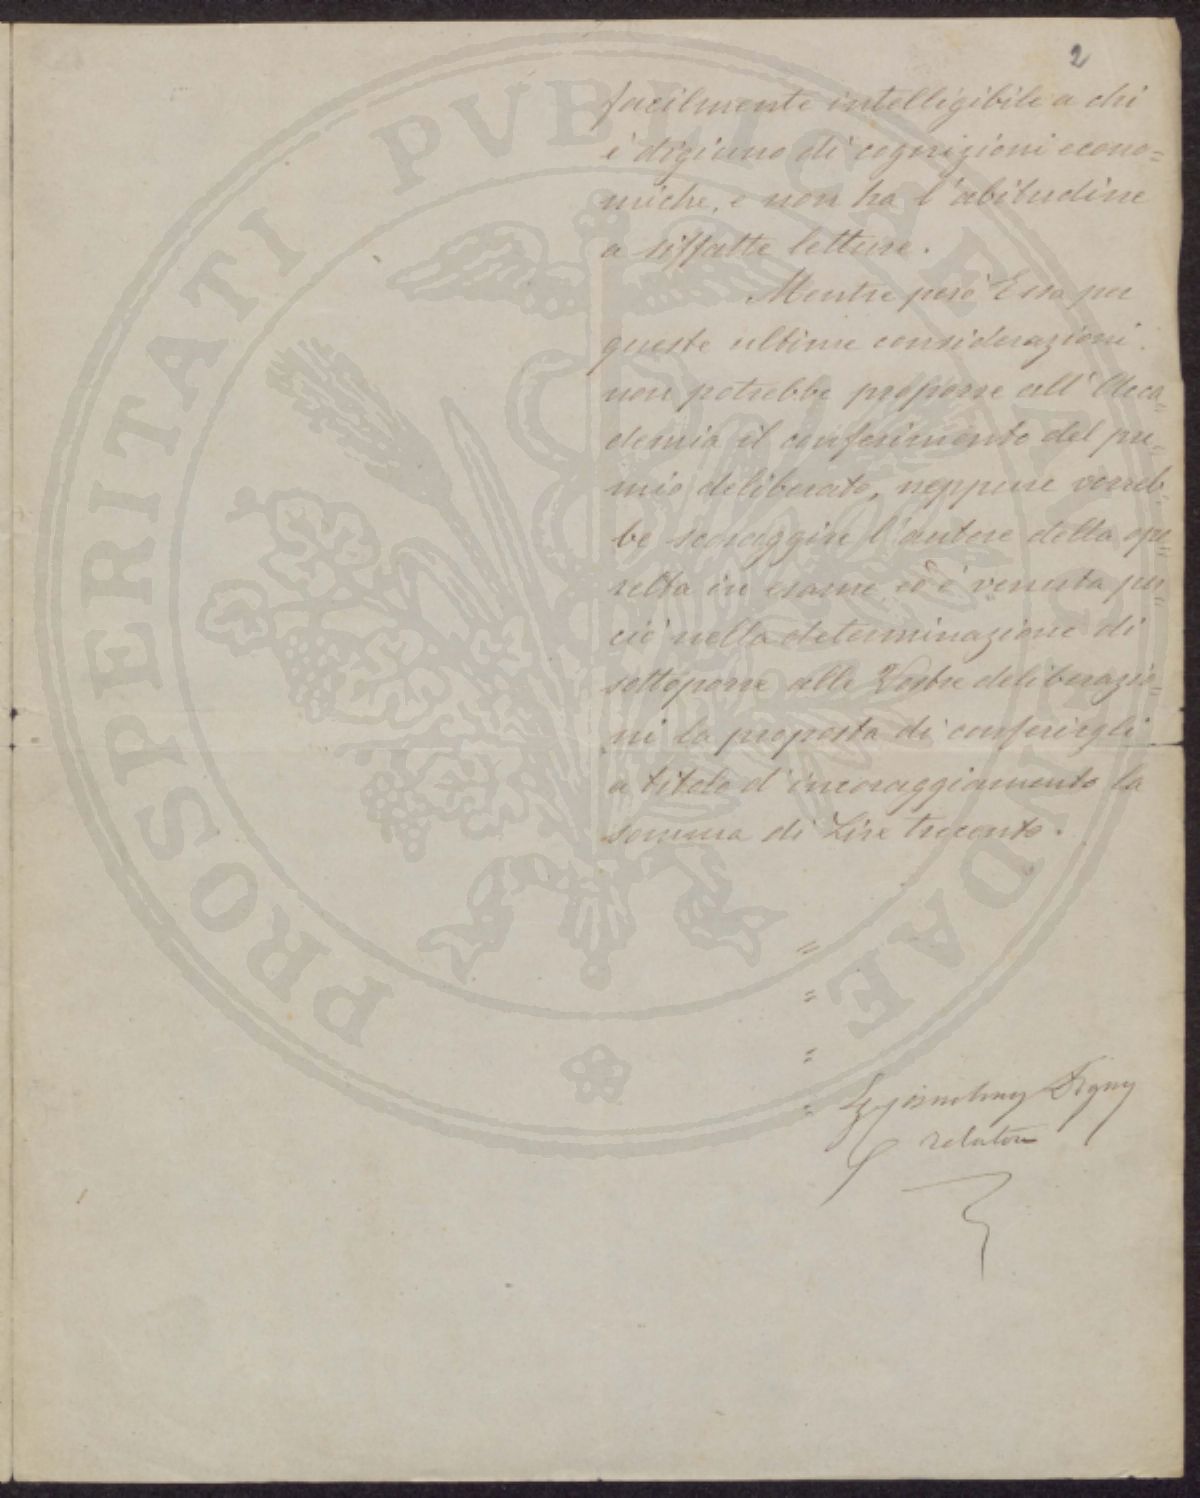 2
facilmente intelligibile a chi
è digiuno di cognizioni econo=
miche, e non ha l'abitudine
a siffatte letture.
Mentre però Essa per
queste ultime considerazioni
non potrebbe proporre all'Acca=
demia il conferimento del pre=
mio deliberato, neppure vorreb=
be scoraggire l'autore della ope=
retta in esame, ed è venuta per=
ciò nella determinazione di
sottoporre alle Vostre deliberazio=
ni la proposta di conferirgli
a titolo d'incoraggiamento la
somma di Lire trecento.
Digny
relatore
PROSPERITATI PVBLICAE AVGENDAE